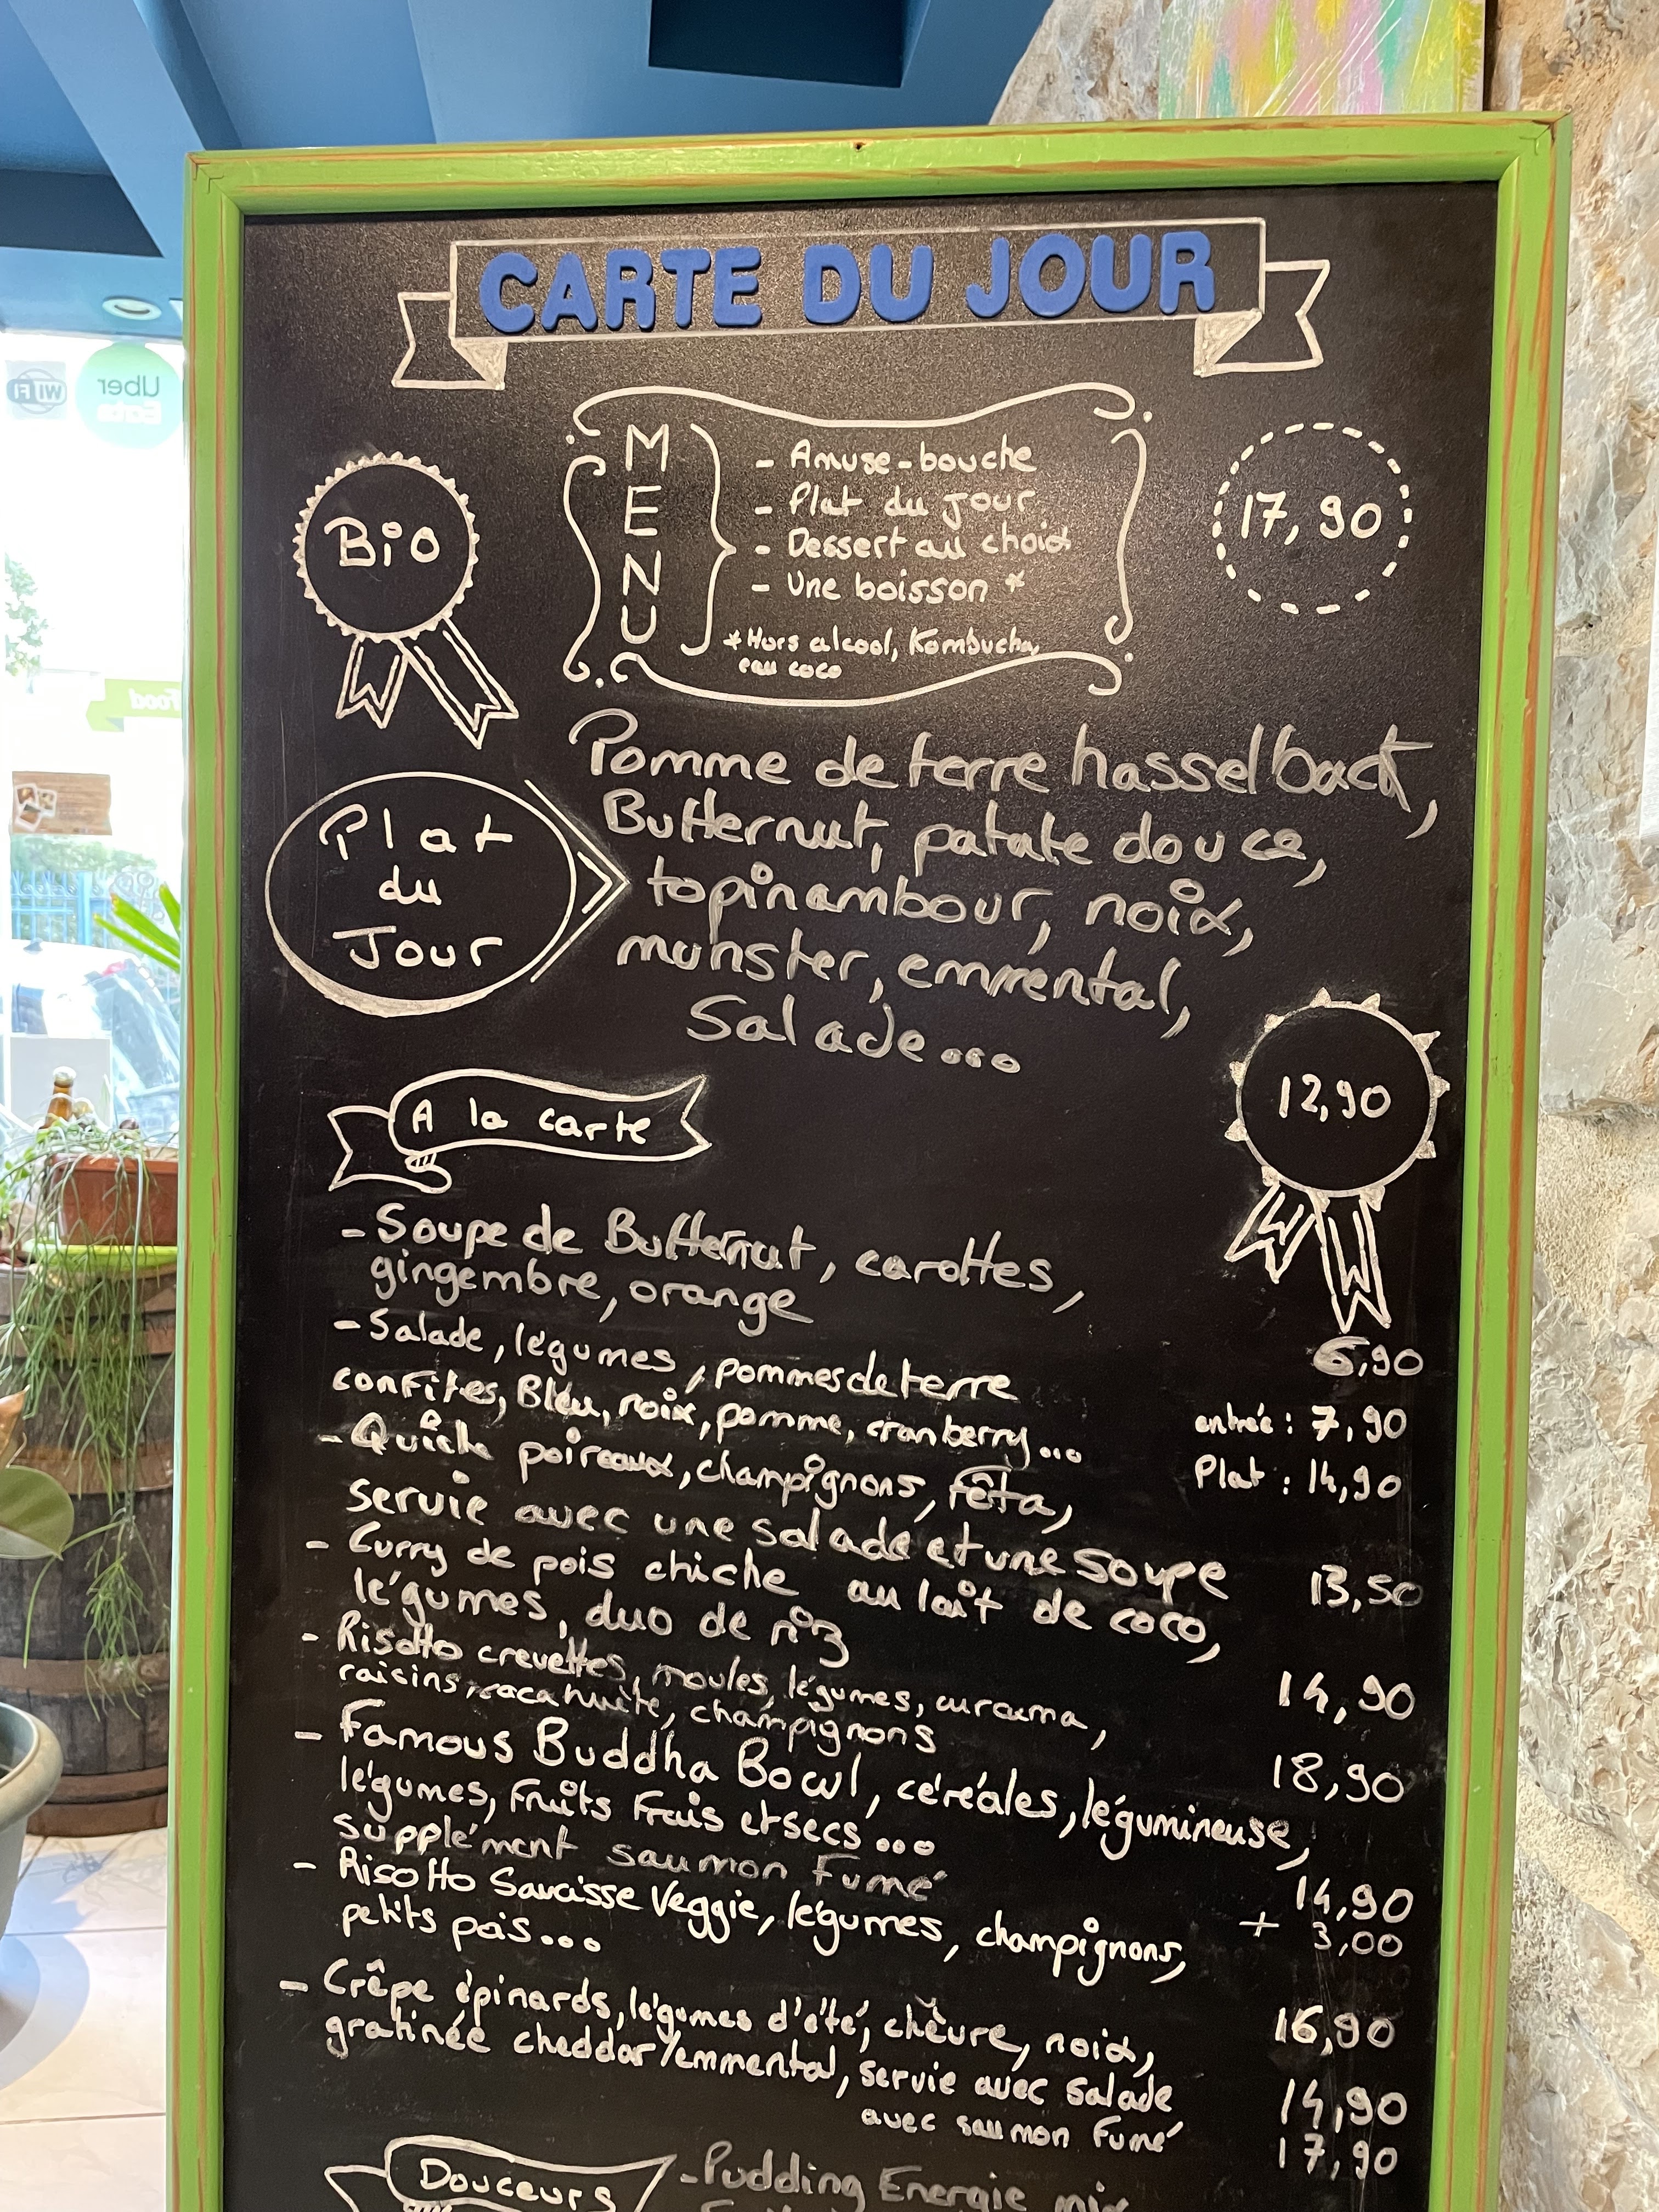 CARTE DU JOUR
Uber
Eats
WIFI
Food
Bio
MENU
- Amuse-bouche
- Plat du jour
- Dessert au choix
- Une boisson *
*Hors alcool, Kombucha,
eau coco
17,90
Plat
du
Jour
Pomme de terre hasselback,
Butternut, patate douce,
topinambour, noix,
munster, emmental,
Salade...
12,90
A la carte
- Soupe de Butternut, carottes,
gingembre, orange
6,90
- Salade, légumes, pommes de terre
confites, Bleu, noix, pomme, cranberry...
entrée : 7,90
Plat : 14,90
- Quiche poireaux, champignons, fêta,
servie avec une salade et une soupe
13,50
- Curry de pois chiche au lait de coco,
légumes, duo de
14,90
- Risotto crevettes, moules, légumes, curcuma,
raisins, cacahuète, champignons
18,90
- Famous Buddha Bowl, céréales, légumineuse,
légumes, fruits frais et secs...
14,90
supplément saumon fumé
+ 3,00
- Risotto Saucisse Veggie, légumes, champignons,
petits pois...
16,90
- Crêpe épinards, légumes d'été, chèvre, noix,
gratinée cheddar/emmental, servie avec salade
14,90
avec saumon fumé
17,90
Douceurs
- Pudding Energie mix